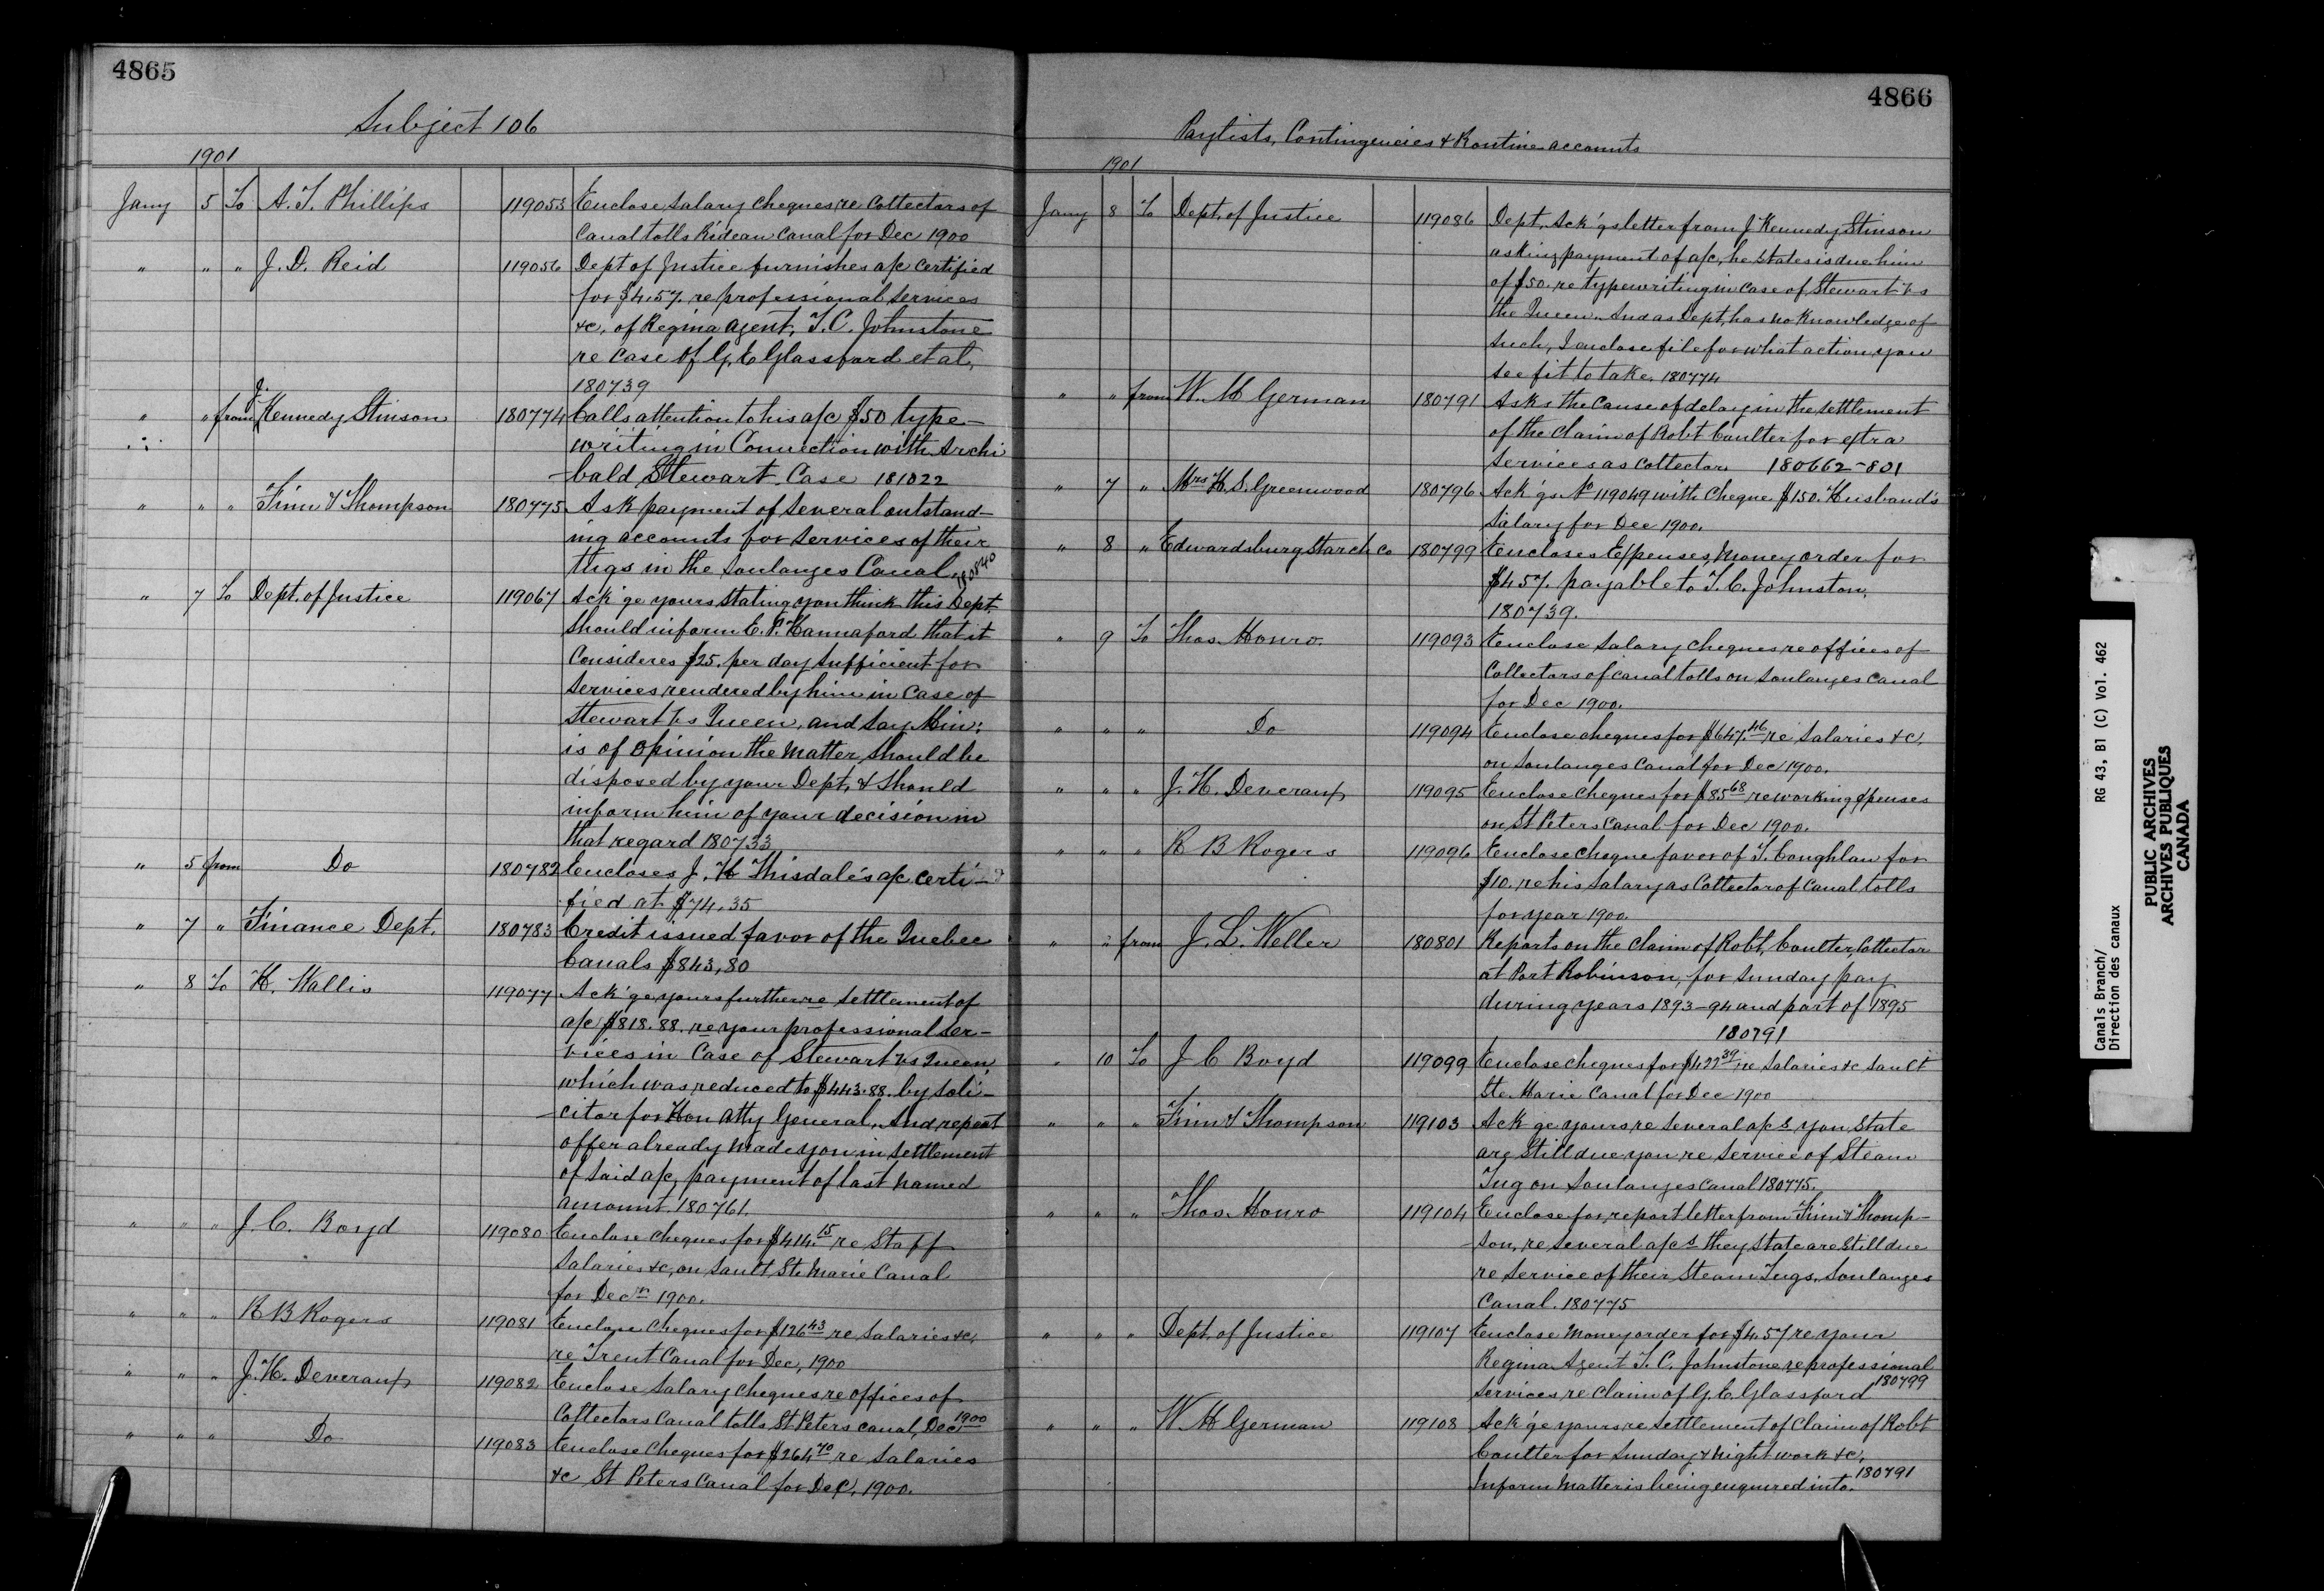 4865
Subject 106
1901
Jany 5 To A. T. Phillips 119053 Enclose salary cheques, re Collectors of
Canal tolls Rideau Canal for Dec 1900
" " " J. D. Reid 119056 Dept of Justice furnishes a/c certified
for $4.57. re professional services
&c, of Regina Agent, T. C. Johnstone
re case of G. E Glassford et al,
180739
" " from J. Kennedy Stinson 180774 Calls attention to his a/c $50 type-
writing in Connection with Archi
-bald Stewart Case 181022
" " " Finn & Thompson 180775 Ask payment of several outstand-
ing accounts for services of their
tugs in the Soulanges Canal. 180840
" 7 To Dept. of Justice 119067 Ack'ge yours stating you think this Dept.
should inform E. P. Hannaford that it
Consideres $25. per day sufficient for
services rendered by him in Case of
Stewart vs Queen, and say Min:
is of opinion the matter should be
disposed by your Dept, & should
inform him of your decision in
that regard 180733
" 5 from Do 180782 Encloses J. H Thisdale's a/c certi-
fied at $74.35
" 7 " Finance Dept. 180783 Credit issued favor of the Quebec
Canals $843,80
" 8 To H. Wallis 119077 Ack'ge yours further re settlement of
a/c $818.88. re your professional ser-
vices in Case of Stewart vs Queen,
which was reduced to $443.88. by soli-
-citor for Hon Atty General, And repeat
offer already made you in settlement
of said a/c, payment of last named
amount. 180761.
" " " J. C. Boyd 119080 Enclose cheques for $414.15 re Staff
Salaries &c, on Sault Ste Marie Canal
for Decr 1900.
" " " R B Rogers 119081 Enclose Cheques for $126 43 re salaries &c,
re Trent Canal for Dec, 1900
" " " J. H. Deveraux 119082 Enclose Salary cheques re offices of
Collectors Canal tolls St Peters canal, Dec. 1900
" " " Do 119083 Enclose Cheques for $264 70 re salaries
&c St Peters Canal for Dec, 1900.
4866
Paylists, Contingencies & Routine accounts
1901
Jany 8 To Dept. of Justice 119086 Dept. Ack'gs letter from J Kennedy Stinson
asking payment of a/c, he states is due him
of $50. re typewriting in case of Stewart vs
the Queen. And as Dept, has no knowledge of
such, I enclose file for what action you
see fit to take. 180774
" " from W. M German 180791 Asks the cause of delay in the settlement
of the claim of Robt Coulter for extra
services as collector 180662-801
" 7 " Mrs H. S. Greenwood 180796 Ack'gs No 119049 with Cheque $150. Husband's
salary for Dec 1900.
" 8 " Edwardsburg Starch Co 180799 Encloses Expenses, Money order for
$4.57. payable to T. C. Johnston.
180739.
" 9 To Thos. Monro. 119093 Enclose salary cheques re offices of
Collectors of canal tolls on Soulanges canal
for Dec 1900.
" " " Do 119094 Enclose cheques for $647.46 re salaries &c,
on Soulanges Canal for Dec 1900.
" " " J. H. Deveraux 119095 Enclose cheques for $85 68 re working expenses
on St Peters Canal for Dec 1900.
" " " R B Rogers 119096 Enclose cheque favor of T. Coughlan for
$10. re his salary as Collector of Canal tolls
for year 1900.
" " from J. L. Weller 180801 Reports on the claim of Robt, Coulter, Collector
at Port Robinson, for Sunday pay
during years 1893-94 and part of 1895
180791
" 10 To J C Boyd 119099 Enclose cheques for $427 39 re salaries &c Sault
Ste. Marie Canal for Dec 1900
" " " Finn & Thompson 119103 Ack'ge yours re several a/cs you state
are still due you re service of Steam
Tug on Soulanges Canal 180775.
" " " Thos. Monro 119104 Enclose for report letter from Finn & Thomp-
-son, re several a/cs they state are still due
re service of their Steam Tugs, Soulanges
Canal. 180775
" " " Dept. of Justice 119107 Enclose Money order for $4.57 re your
Regina Agent T. C. Johnstone re professional
services re claim of G. E. Glassford 180799
" " " W. M German 119108 Ack'ge yours re settlement of claim of Robt
Coulter for Sunday & night work &c.
Inform matter is being enquired into. 180791
Canals Branch/ RG 43, B1 (C) Vol. 462
Direction des canaux
PUBLIC ARCHIVES
ARCHIVES PUBLIQUES
CANADA